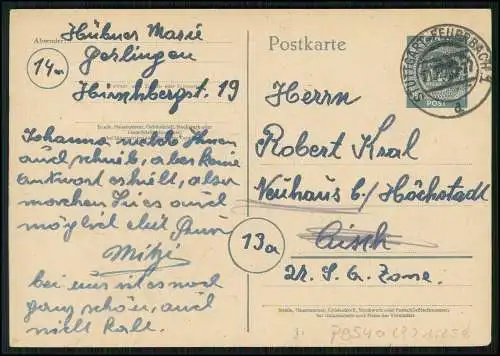 Absender: Hübner Marie
Gerlingen
14a
Hirschbergst. 19
Straße, Hausnummer, Gebäudeteil, Stockwerk oder
Postschließfachnummer
Johanna
auch schrieb, aber keine
antwort erhielt, also
machen Sie es auch
möglich
Mitzi
bei uns ist es noch
ganz schön, auch
nicht kalt.
Postkarte
STUTTGART-FEUERBACH 1
a
POST
Herrn
Robert Kral
Neuhaus b/ Höchstadt
Aisch
13a
U. S. A. Zone.
Straße, Hausnummer, Gebäudeteil, Stockwerk oder Postschließfachnummer;
bei Untermietern auch Name des Vermieters